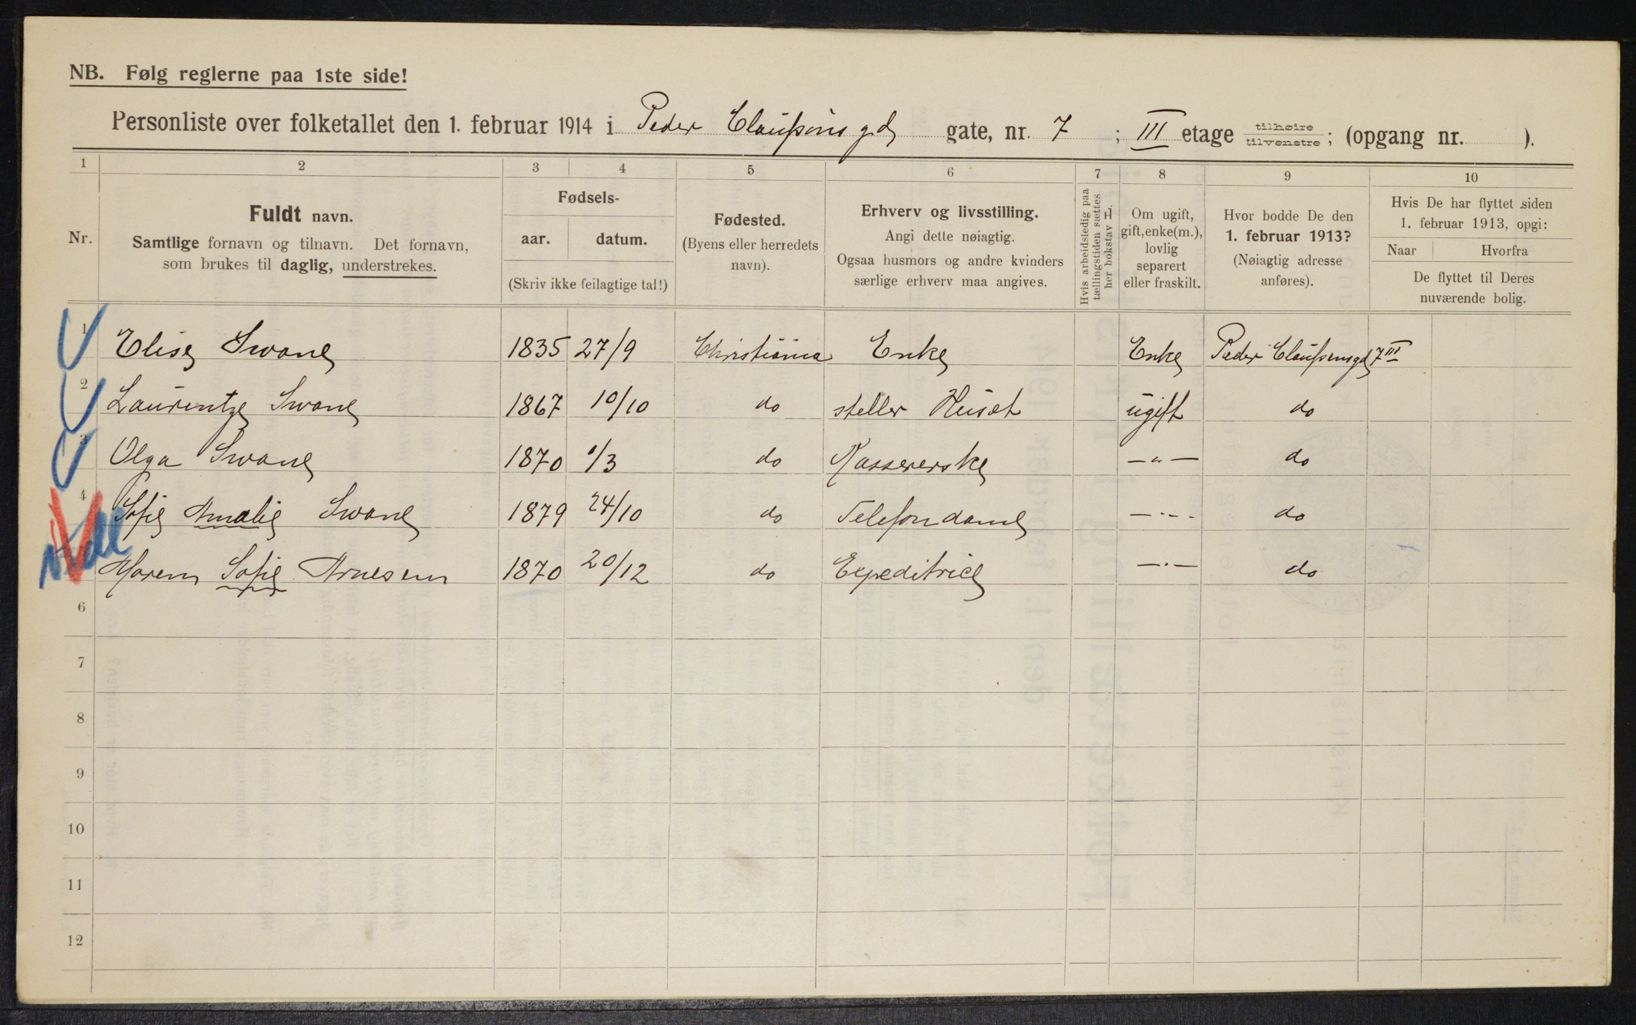 NB. Følg reglerne paa 1ste side!
Personliste over folketallet den 1. februar 1914 i Peder Claussøns gd gate, nr. 7 ; III etage tilhøire tilvenstre ; (opgang nr. ).
1 2 3 4 5 6 7 8 9 10
Nr.
Fuldt navn.
Samtlige fornavn og tilnavn. Det fornavn,
som brukes til daglig, understrekes.
Fødsels-
aar. datum.
(Skriv ikke feilagtige tal!)
Fødested.
(Byens eller herredets
navn).
Erhverv og livsstilling.
Angi dette nøiagtig.
Ogsaa husmors og andre kvinders
særlige erhverv maa angives.
Hvis arbeidsledig paa
tællingstiden sættes
her bokstav L.
Om ugift,
gift, enke(m.),
lovlig
separert
eller fraskilt.
Hvor bodde De den
1. februar 1913?
(Nøiagtig adresse
anføres).
Hvis De har flyttet siden
1. februar 1913, opgi:
Naar Hvorfra
De flyttet til Deres
nuværende bolig.
1 Elise Swane 1835 27/9 Christiania Enke Enke Peder Claussensgd 7 III
2 Laurentze Swane 1867 10/10 do steller Huset ugift do
3 Olga Swane 1870 1/3 do Kassererske — " — do
4 Sofie Amalie Swane 1879 24/10 do Telefondame — " — do
Maren Sofie Arnesen 1870 20/12 do Expeditrice — " — do
6
7
8
9
10
11
12